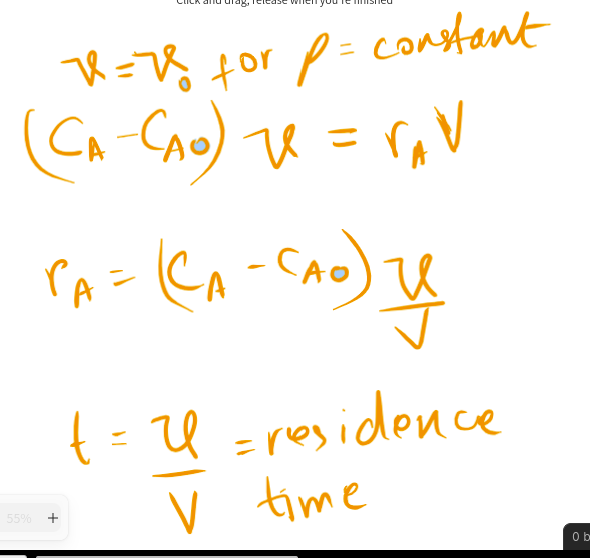 Click and drag, release when you're finished
v = v₀ for ρ = constant
(C_A - C_A0) v = r_A V
r_A = (C_A - C_A0) v/V
t = v/V = residence
time
55% +
0 b